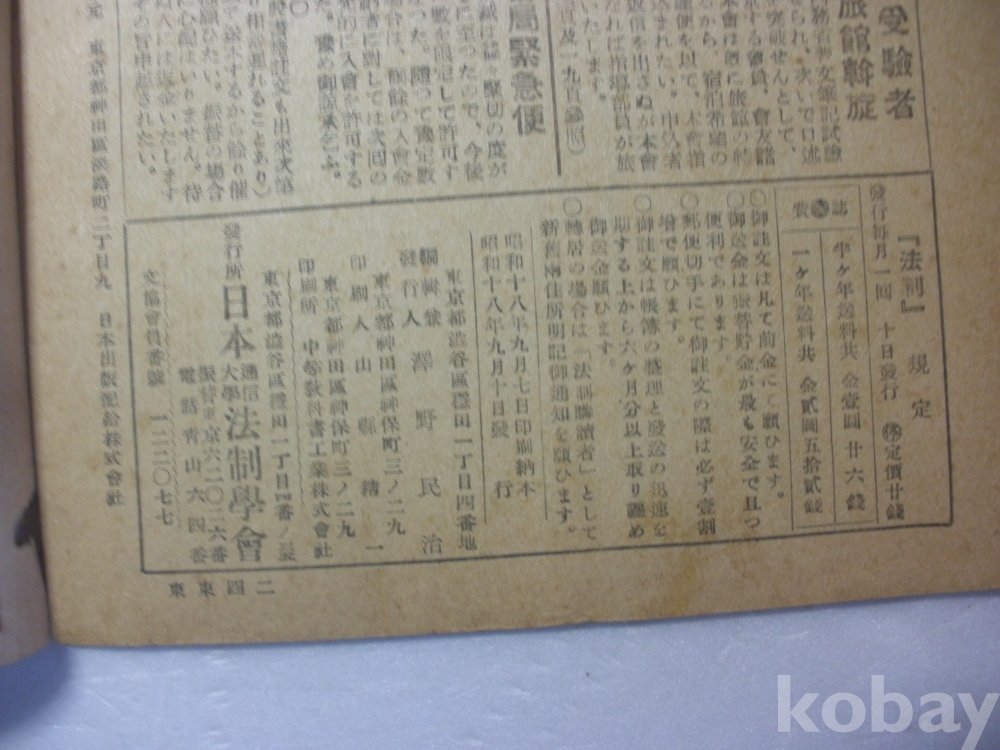 受驗者
旅館斡旋
務省等文筆記試驗
せられ、次いで口述
を突破せんとして、
便を以て、本會指
まれたい。申込者
返信を出さぬが本會
れば指導部員が旅
いたします。
百及一九頁參照)
局緊急便
誠は益々緊切の度が
に至つたので、今後
數を限定して許可す
なつた。隨つて豫定數
場合は、御餘の入會金
者に對しては次回の
先的に入會を許可する
豫め御諒承を乞ふ。
註文も出來次第
相當遲れることあり)
送本するから餘り催
願ひたい。振替の場合
に心配はいりません。待
人には返金いたします
の旨申越されたい。
元 東京都神田區淡路町二丁目九 日本出版配給株式會社
『法制』規定
發行每月一回 十日發行 定價廿錢
誌代
半ケ年送料共 金壹圓廿六錢
一ケ年送料共 金貳圓五拾貳錢
○御註文は凡て前金にて願ひます。
○御送金は振替貯金が最も安全で且つ
便利であります。
○郵便切手にて御註文の際は必ず壹割
增で願ひます。
○御註文は帳簿の整理と發送の迅速を
期する上から六ヶ月分以上取り纏め
御送金願ひます。
○轉居の場合は「法制購讀者」として
新舊兩住所明記御通知を願ひます。
昭和十八年九月七日印刷納本
昭和十八年九月十日發行
東京都澁谷區穩田一丁目四番地
編輯兼發行人 澤野民治
東京都神田區神保町三ノ二九
印刷人 山縣精一
東京都神田區神保町三ノ二九
印刷所 中等敎科書工業株式會社
東京都澁谷區穩田一丁目四番ノ三
發行所 日本通信大學法制學會
振替東京六二〇二六番
電話靑山六四番
文協會員番號 一二二〇七七
東東四二
kobay